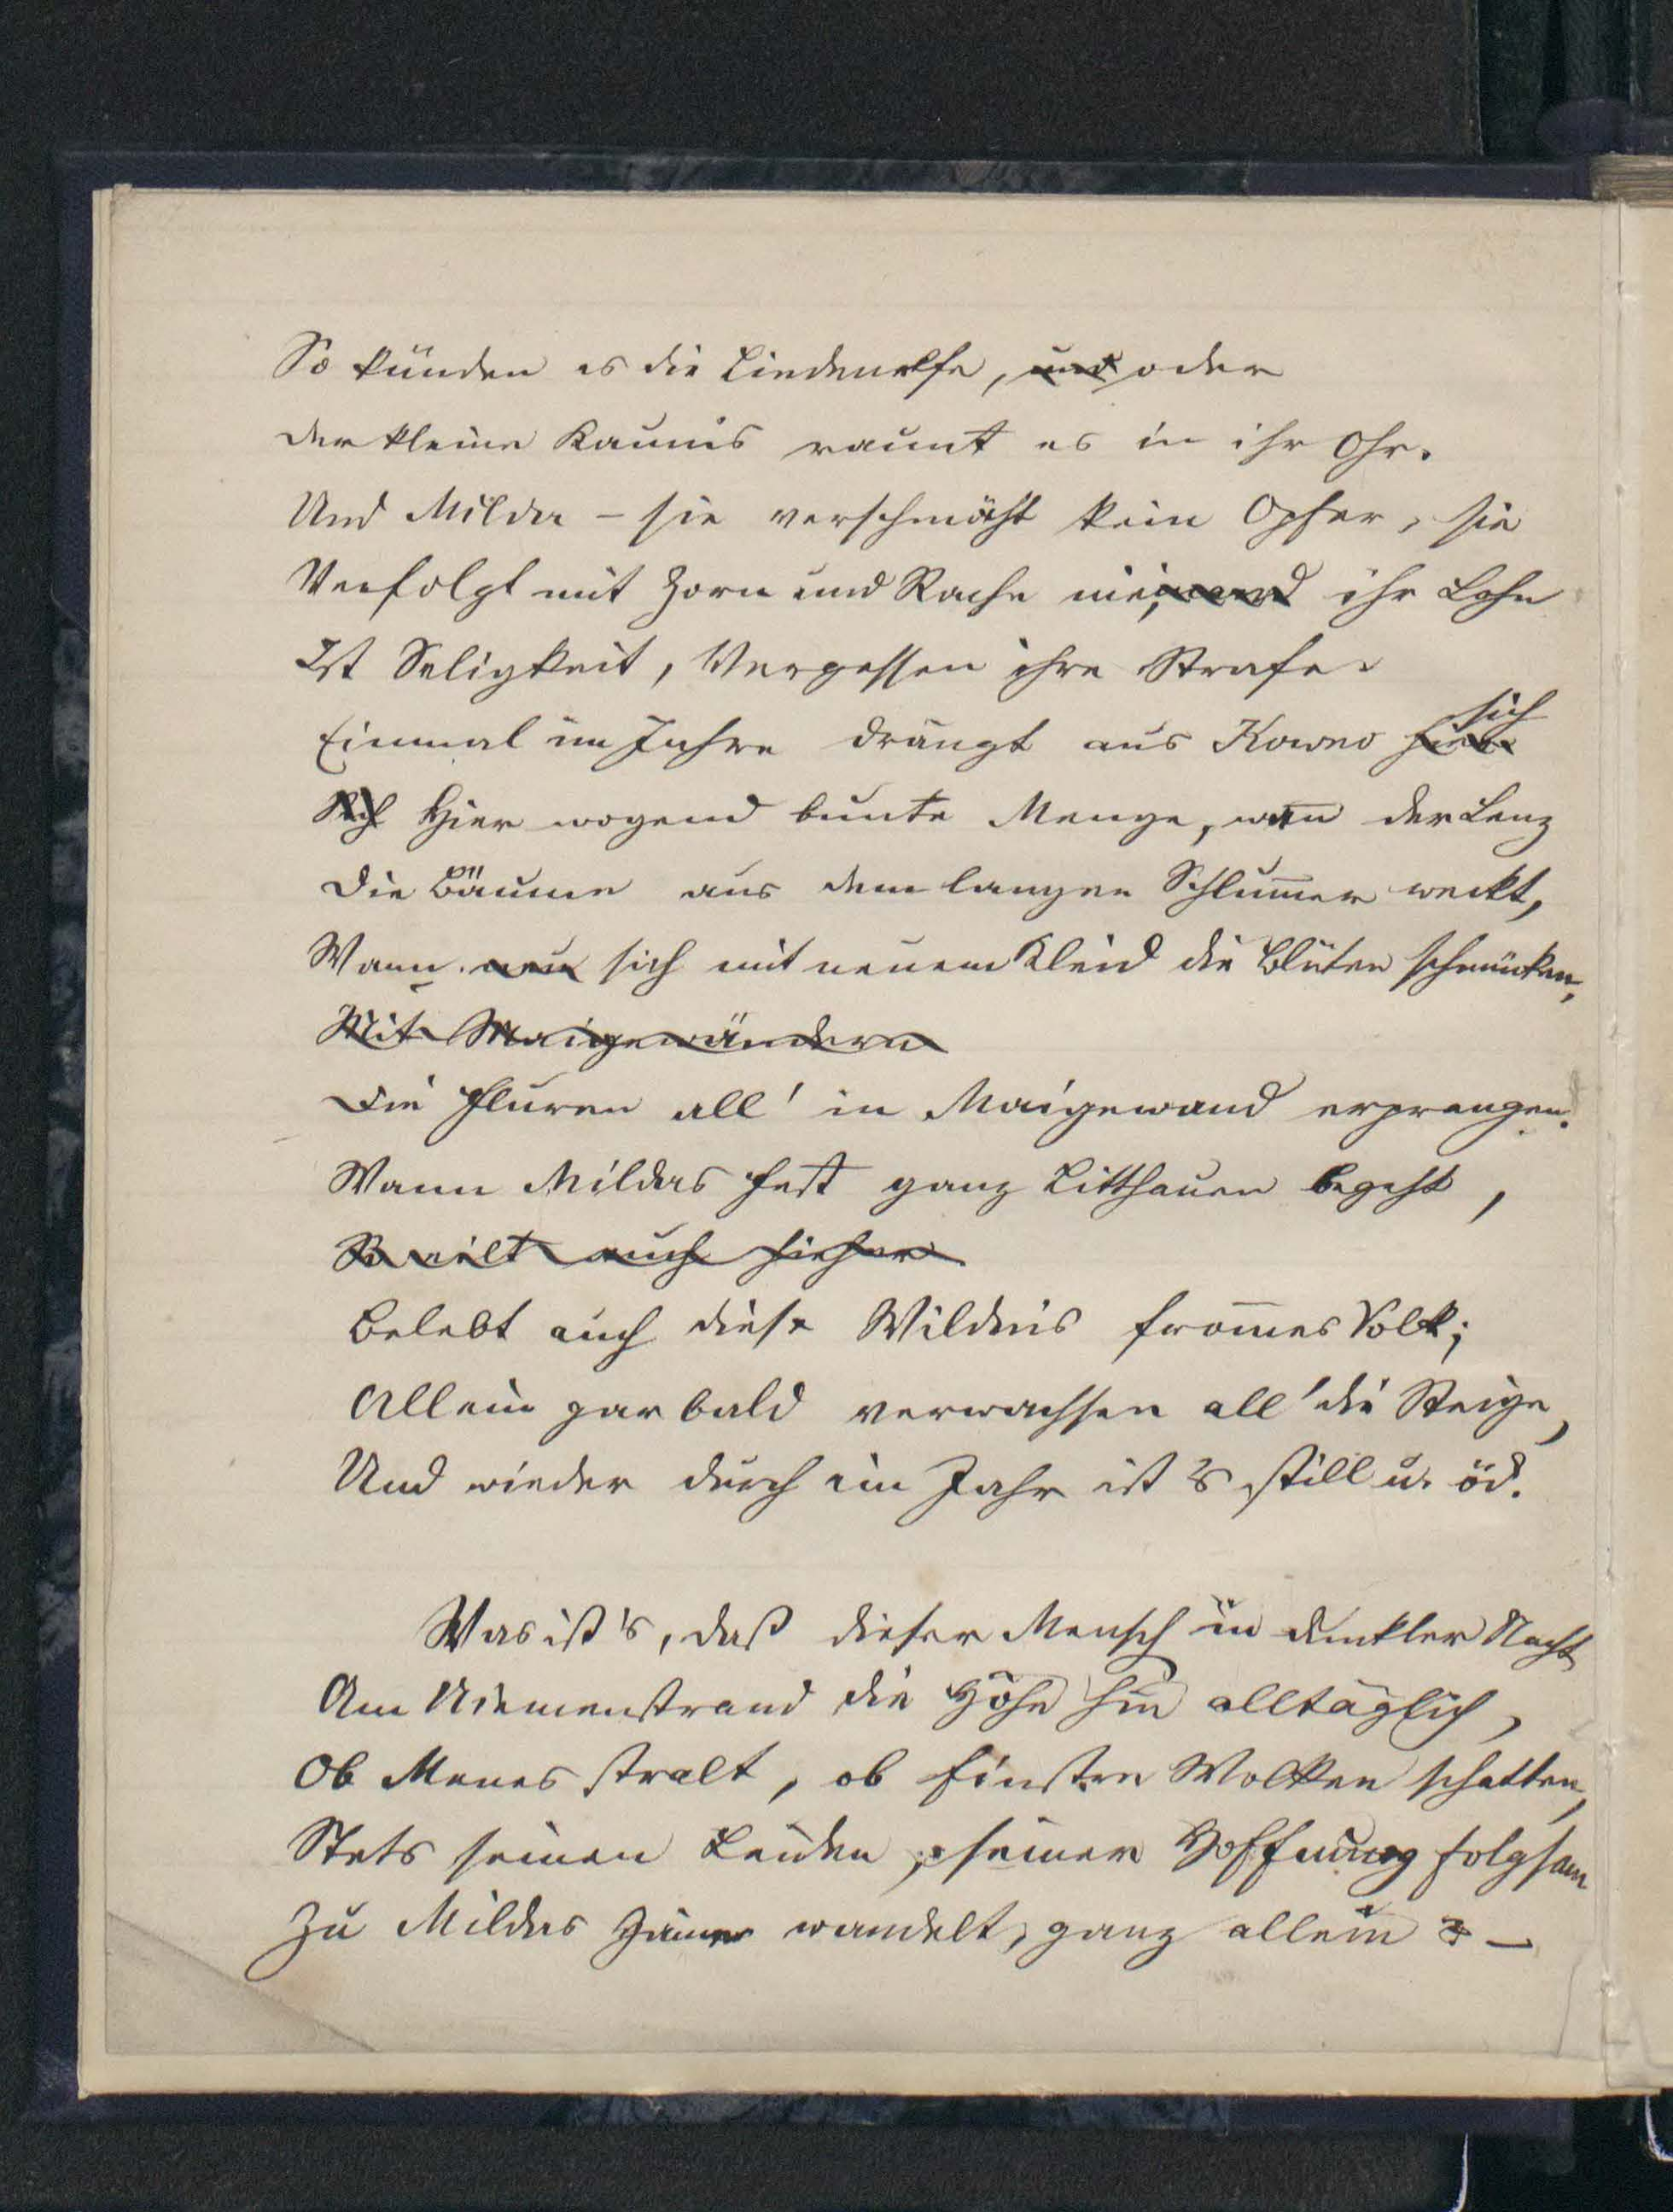 So künden es die Lindenelfe, und oder
der kleine Kaunis raunt es in ihr Ohr.
Und Milda – sie verschmäht kein Opfer, sie
Verfolgt mit Zorn und Rache niemand ihr Lohn
Ist Seligkeit, Vergessen ihre Strafe.
Einmal im Jahre drängt aus Kowno hier sich
Sich Hier wogend bunte Menge, wan̄ der Lenz
Die Bäume aus dem langen Schlum̄er weckt,
Wann neu sich mit neuem Kleid die Blüten schmücken,
Mit Maigewändern
Die Fluren all' in Maigewand erprangen.
Wann Mildas Fest ganz Litthauen begeht,
So eilt auch hieher
Belebt auch diese Wildnis from̄es Volk;
Allein gar bald verwachsen all' die Steige,
Und wieder durch ein Jahr ist's still u. öd.
Was ist's, daß dieser Mensch in dunkler Nacht
Am Niemenstrand die Höhe hin alltäglich,
Ob Menes stralt, ob finstre Wolken schatten,
Stets seinen Leiden, seiner Hoffnung folgsam
Zu Mildas wandelt, ganz allein? –